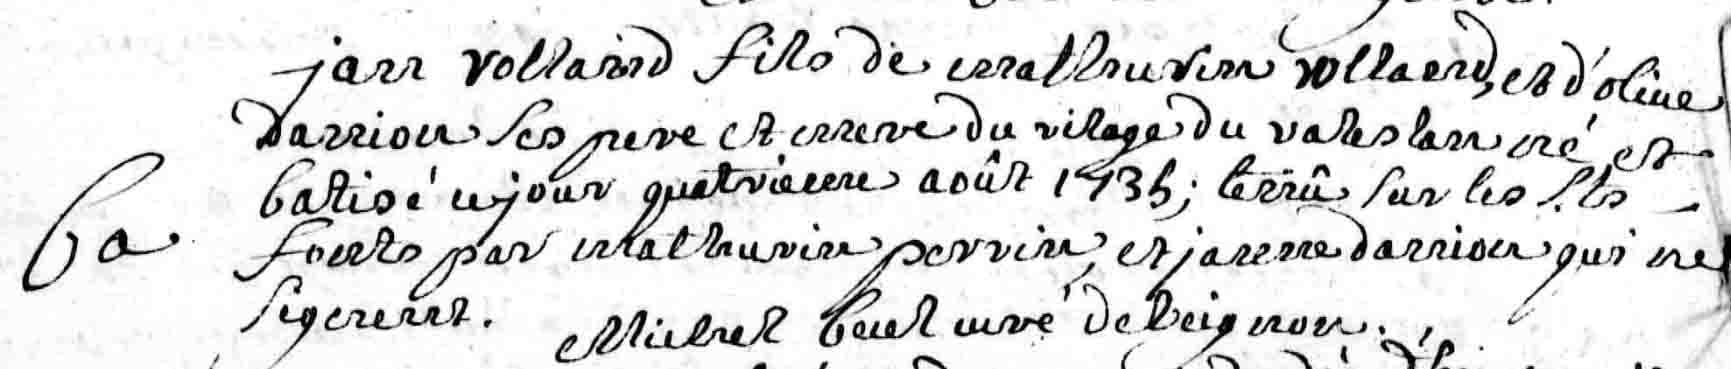 jan vollaind fils de mathurin vollaend, et d'olive
darrion ses pere et mere du vilage du valeslan né et
batisé ce jour quatrième août 1735; tenû sur les s.ts
ba fonts par mathurin perrin, et janne darrion qui ne
signent.
Michel beul curé de beignon.